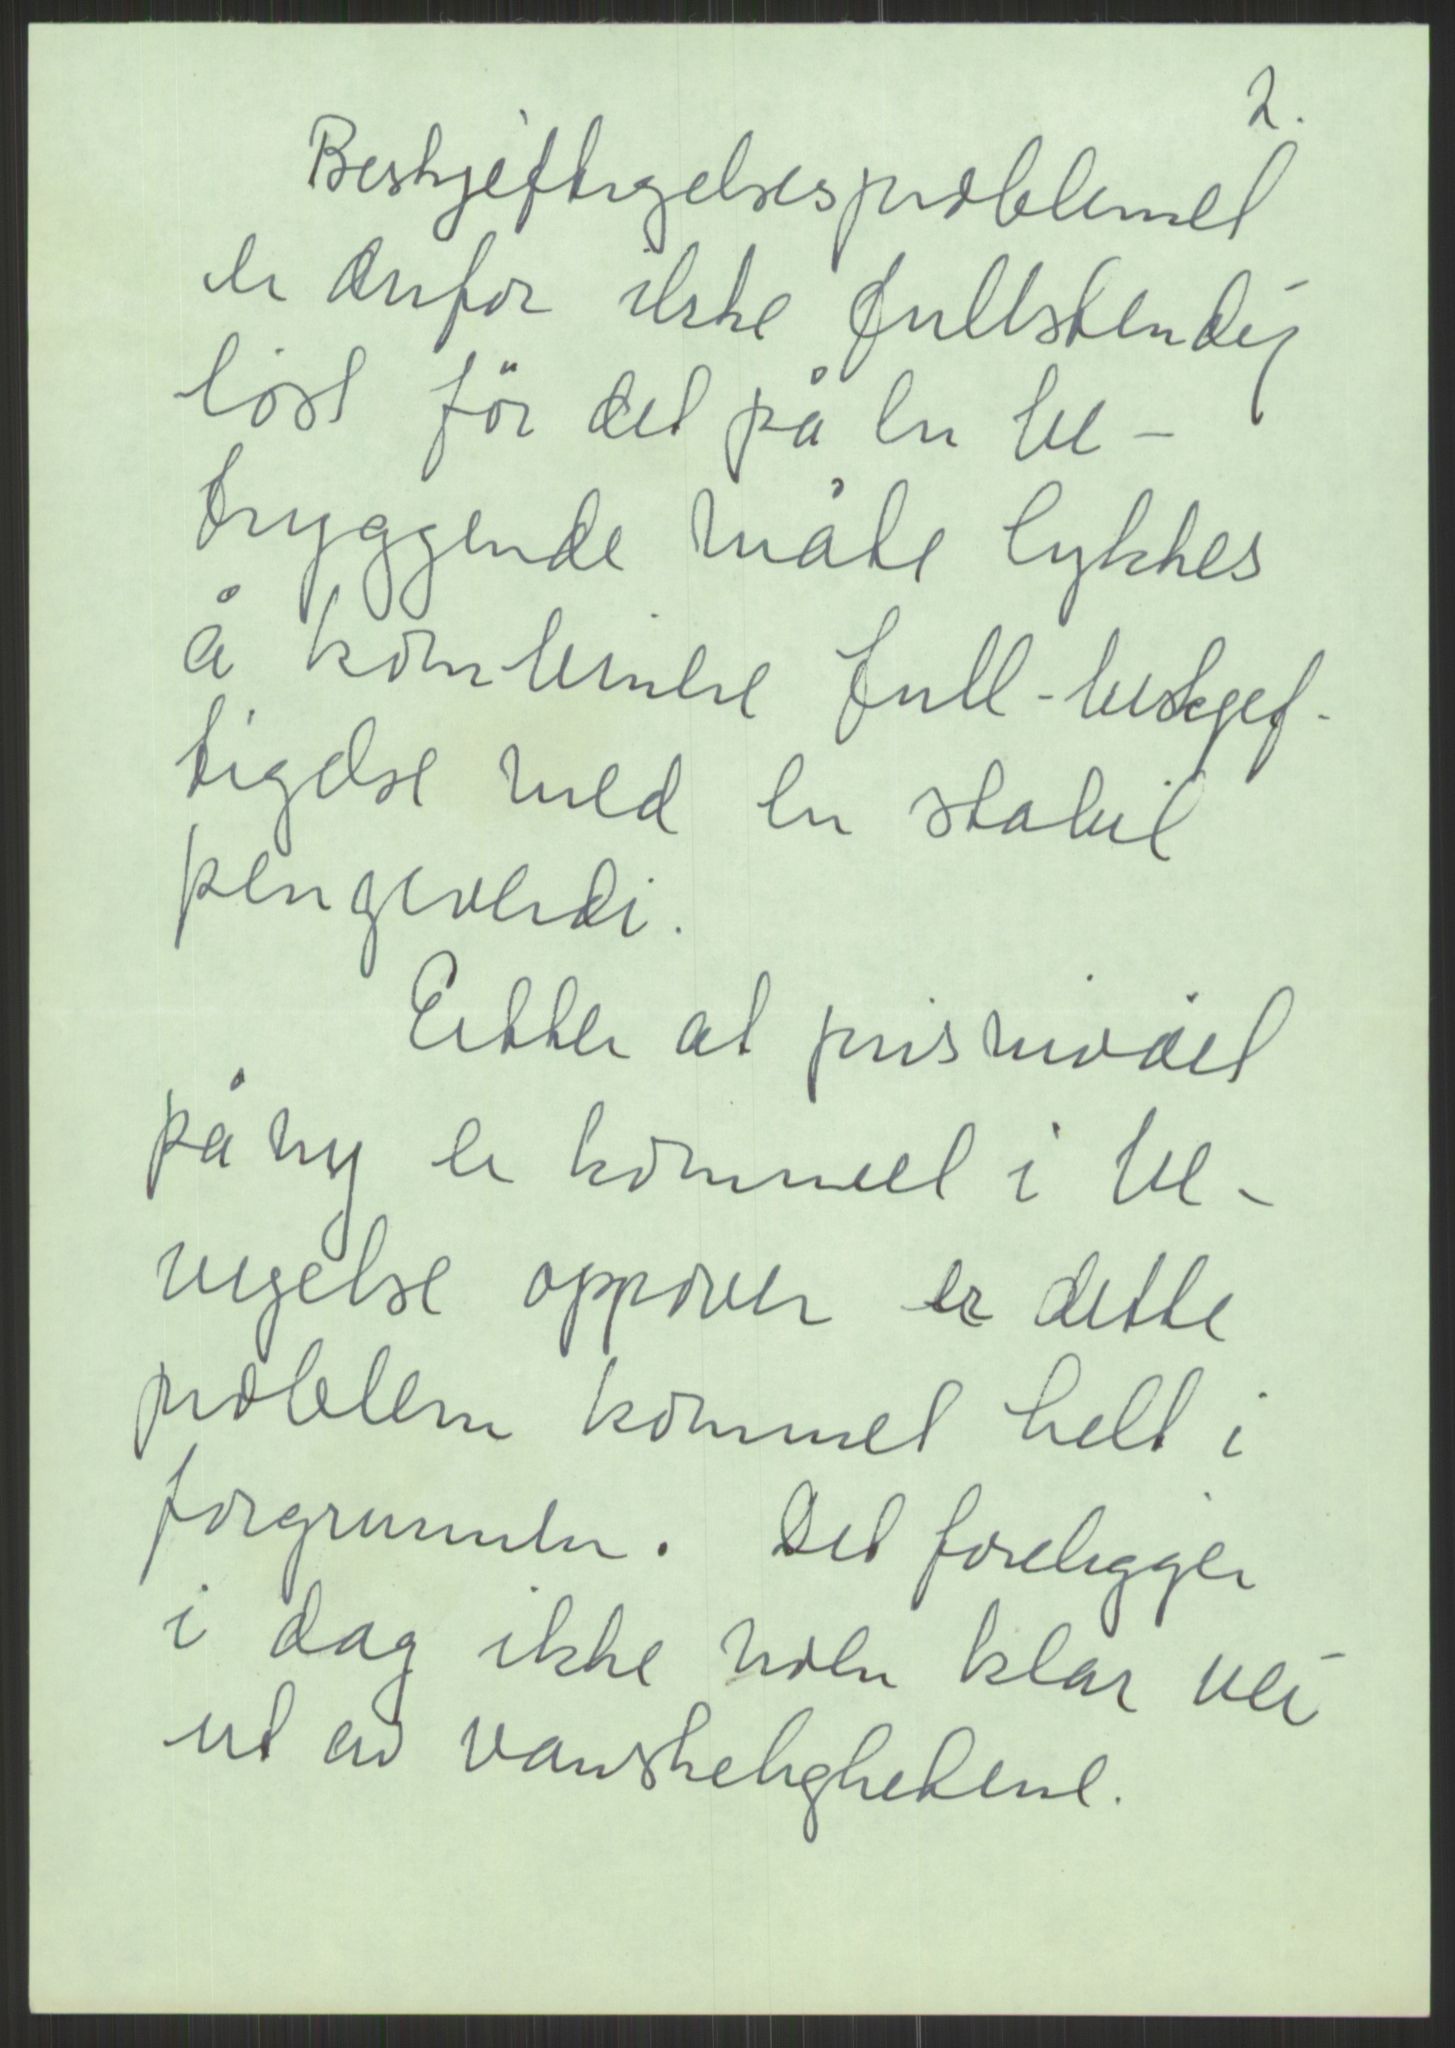 2.
Beskjeftigelsesproblemet
er derfor ikke fullstendig
löst för det på en be-
tryggende måte lykkes
å kombinere full-beskjef-
tigelse med en stabil
pengeverdi.
Etter at prisnivået
på ny er kommet i be-
vegelse oppover er dette
problem kommet helt i
forgrunnen. Det foreligger
i dag ikke noen klar vei
ut av vanskelighetene.